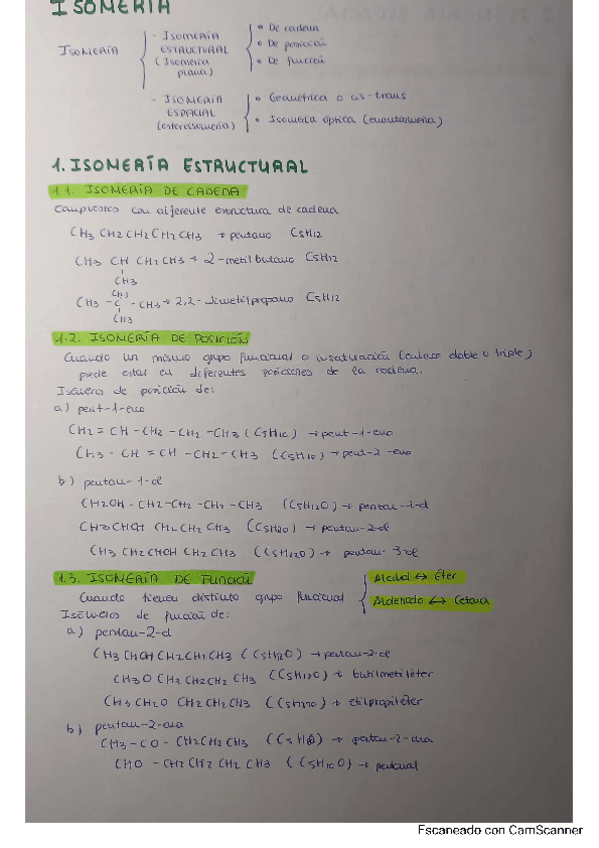 ISOMERÍA
ISOMERÍA
- ISOMERÍA ESTRUCTURAL (Isomería plana)
• De cadena
• De posición
• De función
- ISOMERÍA ESPACIAL (estereoisomería)
• Geométrica o cis-trans
• Isomería óptica (enantiomería)
1. ISOMERÍA ESTRUCTURAL
1.1. ISOMERÍA DE CADENA
Compuestos con diferente estructura de cadena
CH3 CH2 CH2 CH2 CH3 → pentano C5H12
CH3 CH CH2 CH3 → 2-metilbutano C5H12
CH3
CH3
CH3 - C - CH3 → 2,2-dimetilpropano C5H12
CH3
1.2. ISOMERÍA DE POSICIÓN
Cuando un mismo grupo funcional o insaturación (enlace doble o triple)
puede estar en diferentes posiciones de la cadena.
Isómeros de posición de:
a) pent-1-eno
CH2 = CH - CH2 - CH2 - CH3 (C5H10) → pent-1-eno
CH3 - CH = CH - CH2 - CH3 (C5H10) → pent-2-eno
b) pentan-1-ol
CH2OH - CH2 - CH2 - CH2 - CH3 (C5H12O) → pentan-1-ol
CH3 CHOH CH2 CH2 CH3 (C5H12O) → pentan-2-ol
CH3 CH2 CHOH CH2 CH3 (C5H12O) → pentan-3-ol
1.3. ISOMERÍA DE FUNCIÓN
Cuando tienen distinto grupo funcional
Alcohol ↔ Éter
Aldehído ↔ Cetona
Isómeros de función de:
a) pentan-2-ol
CH3 CHOH CH2 CH2 CH3 (C5H12O) → pentan-2-ol
CH3 O CH2 CH2 CH2 CH3 (C5H12O) → butilmetiléter
CH3 CH2 O CH2 CH2 CH3 (C5H12O) → etilpropiléter
b) pentan-2-ona
CH3 - CO - CH2 CH2 CH3 (C5H10O) → pentan-2-ona
CHO - CH2 CH2 CH2 CH3 (C5H10O) → pentanal
Escaneado con CamScanner